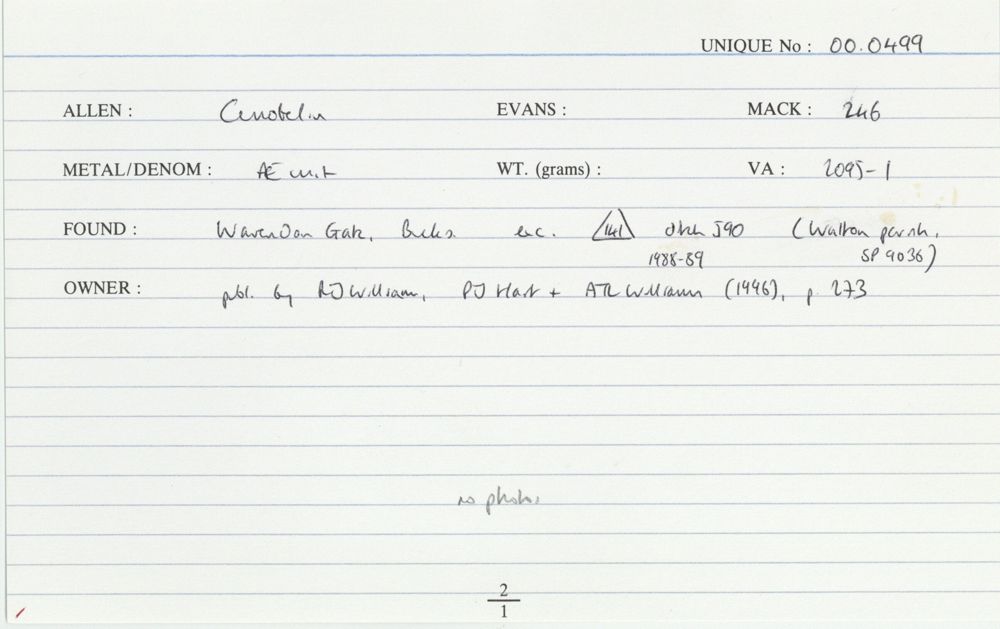 UNIQUE No : 00.0499
ALLEN : Cunobelin EVANS : MACK : 246
METAL/DENOM : Æ unit WT. (grams) : VA : 2095-1
FOUND : Wavendon Gate, Bucks exc. 141 ditch 590 (Walton parish,
1988-89 SP 9036)
OWNER : publ. by RJ Williams, PJ Hart + ATL Williams (1996), p. 273
no photos
2
1